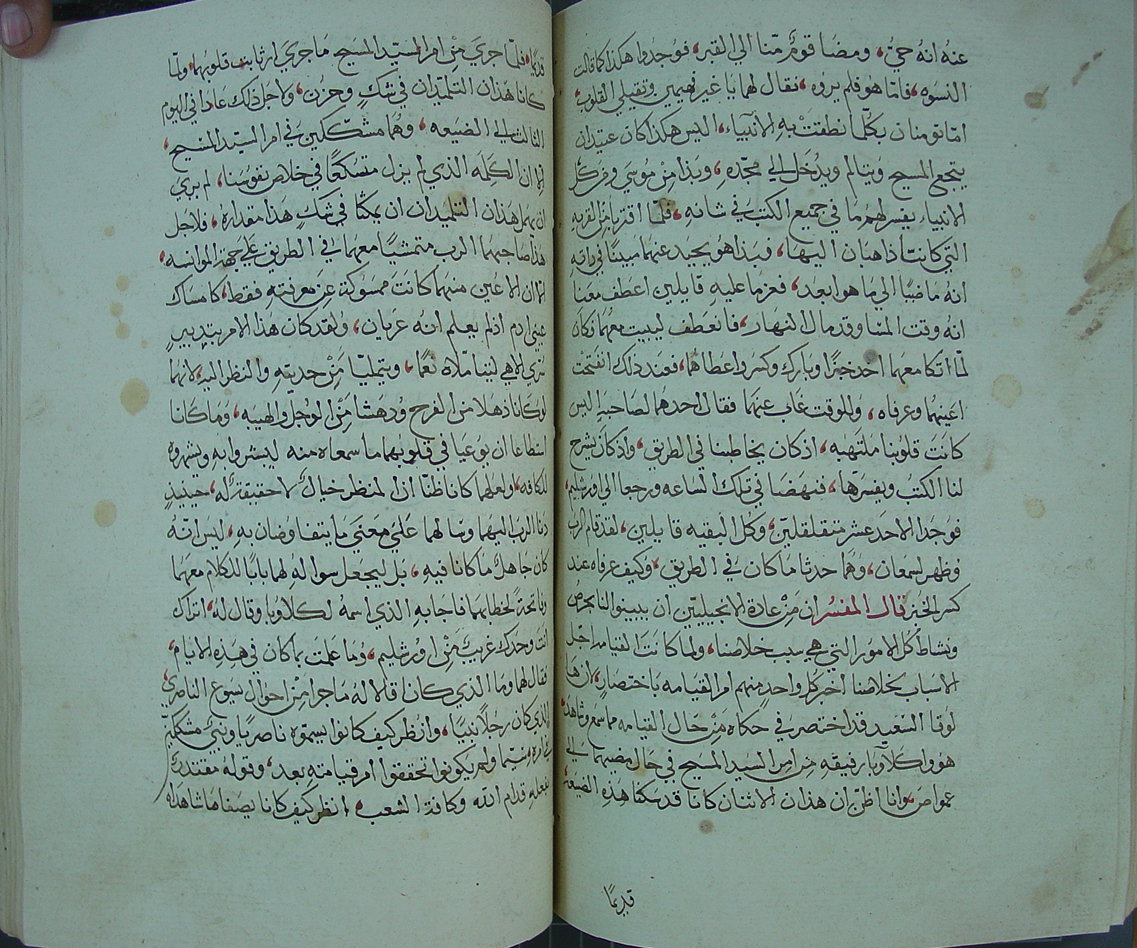 عنه انه حيّ، ومضا قومٌ منّا الي القبر، فوجدوا هكذا كما قالت
النسوه، فامّا هو فلم يروه، فقال لهما يا غير فهيمين وثقيلي القلوب
اما تومنان بكلما نطقت به الانبياء، اليس هكذا كان عتيدان
المسيح ويتالم ويدخل الي مجده، وبدا من موسي ومن كل
الانبياء يفسر لهم ما في جميع الكتب في شانه، فلمّا اقتربا من القريه
التي كانتا ذاهبان اليها، فبدا هو يحيد عنهما مبينًا في راته
انه ماضيًا الي ما هو ابعد، فعزما عليه قايلين اعطف معنا
انه وقت المسا وقد مال النهار، فانعطف ليبيت معهما فكان
لمّا اتكا معهما اخذ خبزًا وبارك وكسر واعطاهما، فعند ذلك انفتحت
اعينهما وعرفاه، وللوقت غاب عنهما فقال احدهما لصاحبه اليس
كانت قلوبنا ملتهبه، اذ كان يخاطبنا في الطريق، واذ كان يشرح
لنا الكتب ويفسرها، فنهضا في تلك الساعه ورجعا الي اورشليم،
فوجدا الاحد عشر متقلقلين، وكل البقيه قايلين، لقد قام الرب
وظهر لسمعان، وهما حدثا ما كان في الطريق، وكيف عرفاه عند
كسر الخبز قال المفسر ان من عادة الانجيليين ان يبينوا لنا بحرص
ونشاط كل الامور التي هي سبب خلاصنا، ولما كانت القيامه اجل
الاسباب بخلاصنا اخبر كل واحد منهم امر القيامه باختصار، لان هذا
لوقا السعيد قد اختصر في حكاه من حال القيامه مما سمع وشاهد
هو واكلاوبا رفيقه من امر السيد المسيح في حال مضيهما الي
عمواص، وانا اظن ان هذان الاثنان كانا قد سكنا هذه الضيعه
قديمًا
قديمًا، فلمّا جري من امر السيد المسيح ما جري ارتابت قلوبهما، ولمّا
كانا هذان التلميذان في شك وحزن، ولاجل ذلك عادا في اليوم
الثالث الي الضيعه، وهما مشككين في امر السيد المسيح،
الا ان الكلمه الذي لم يزل في خلاص نفوسنا، لم يري
ان يهمل هذان التلميذان ان يمكثا في شك هذا مقداره، فلاجل
هذا صاحبهما الرب متمشيًا معهما في الطريق علي جهة الموانسه،
الا ان الاعين منهما كانت ممسوكة عن معرفته فقط، كامساك
عيني ادم اذ لم يعلم انه عريان، ولقد كان هذا الامر بتدبير
الاهي ليتاملاه نعمًا، ويتمليا من حديثه والنظر اليه، لانهما
لو كانا ذهلا من الفرح ودهشا من الوجل والهيبه، وما كانا
استطاعا ان يوعيا في قلوبهما ما سمعاه منه ليبشروا به ويشهروه
للكافه، ولعلهما كانا ظنا ان المنظر خيال لا حقيقة له، حينيذ
دنا الرب اليهما وسالهما علي معني ما يتفاوضان به، ليس انه
كان جاهلا ما كانا فيه، بل ليجعل سواله لهما بابًا للكلام معهما
وفاتحة لخطابهما فاجابه الذي اسمه اكلاوبا وقال له، اتراك
انت وحدك غريب من اورشليم، وما علمت بما كان في هذه الايام،
فقال لهما وما الذي كان فقالا له ما جرا من احوال يسوع الناصري،
الذي كان رجلًا نبيًا، وانظر كيف كانوا يسموه ناصريًا ونبي مشككين
في امره، ولم يكونوا تحققوا امر قيامته بعد، وقوله مقتدرًا
بفعله قدام الله وكافة الشعب، انظر كيف كانا يصفا ما شاهداه